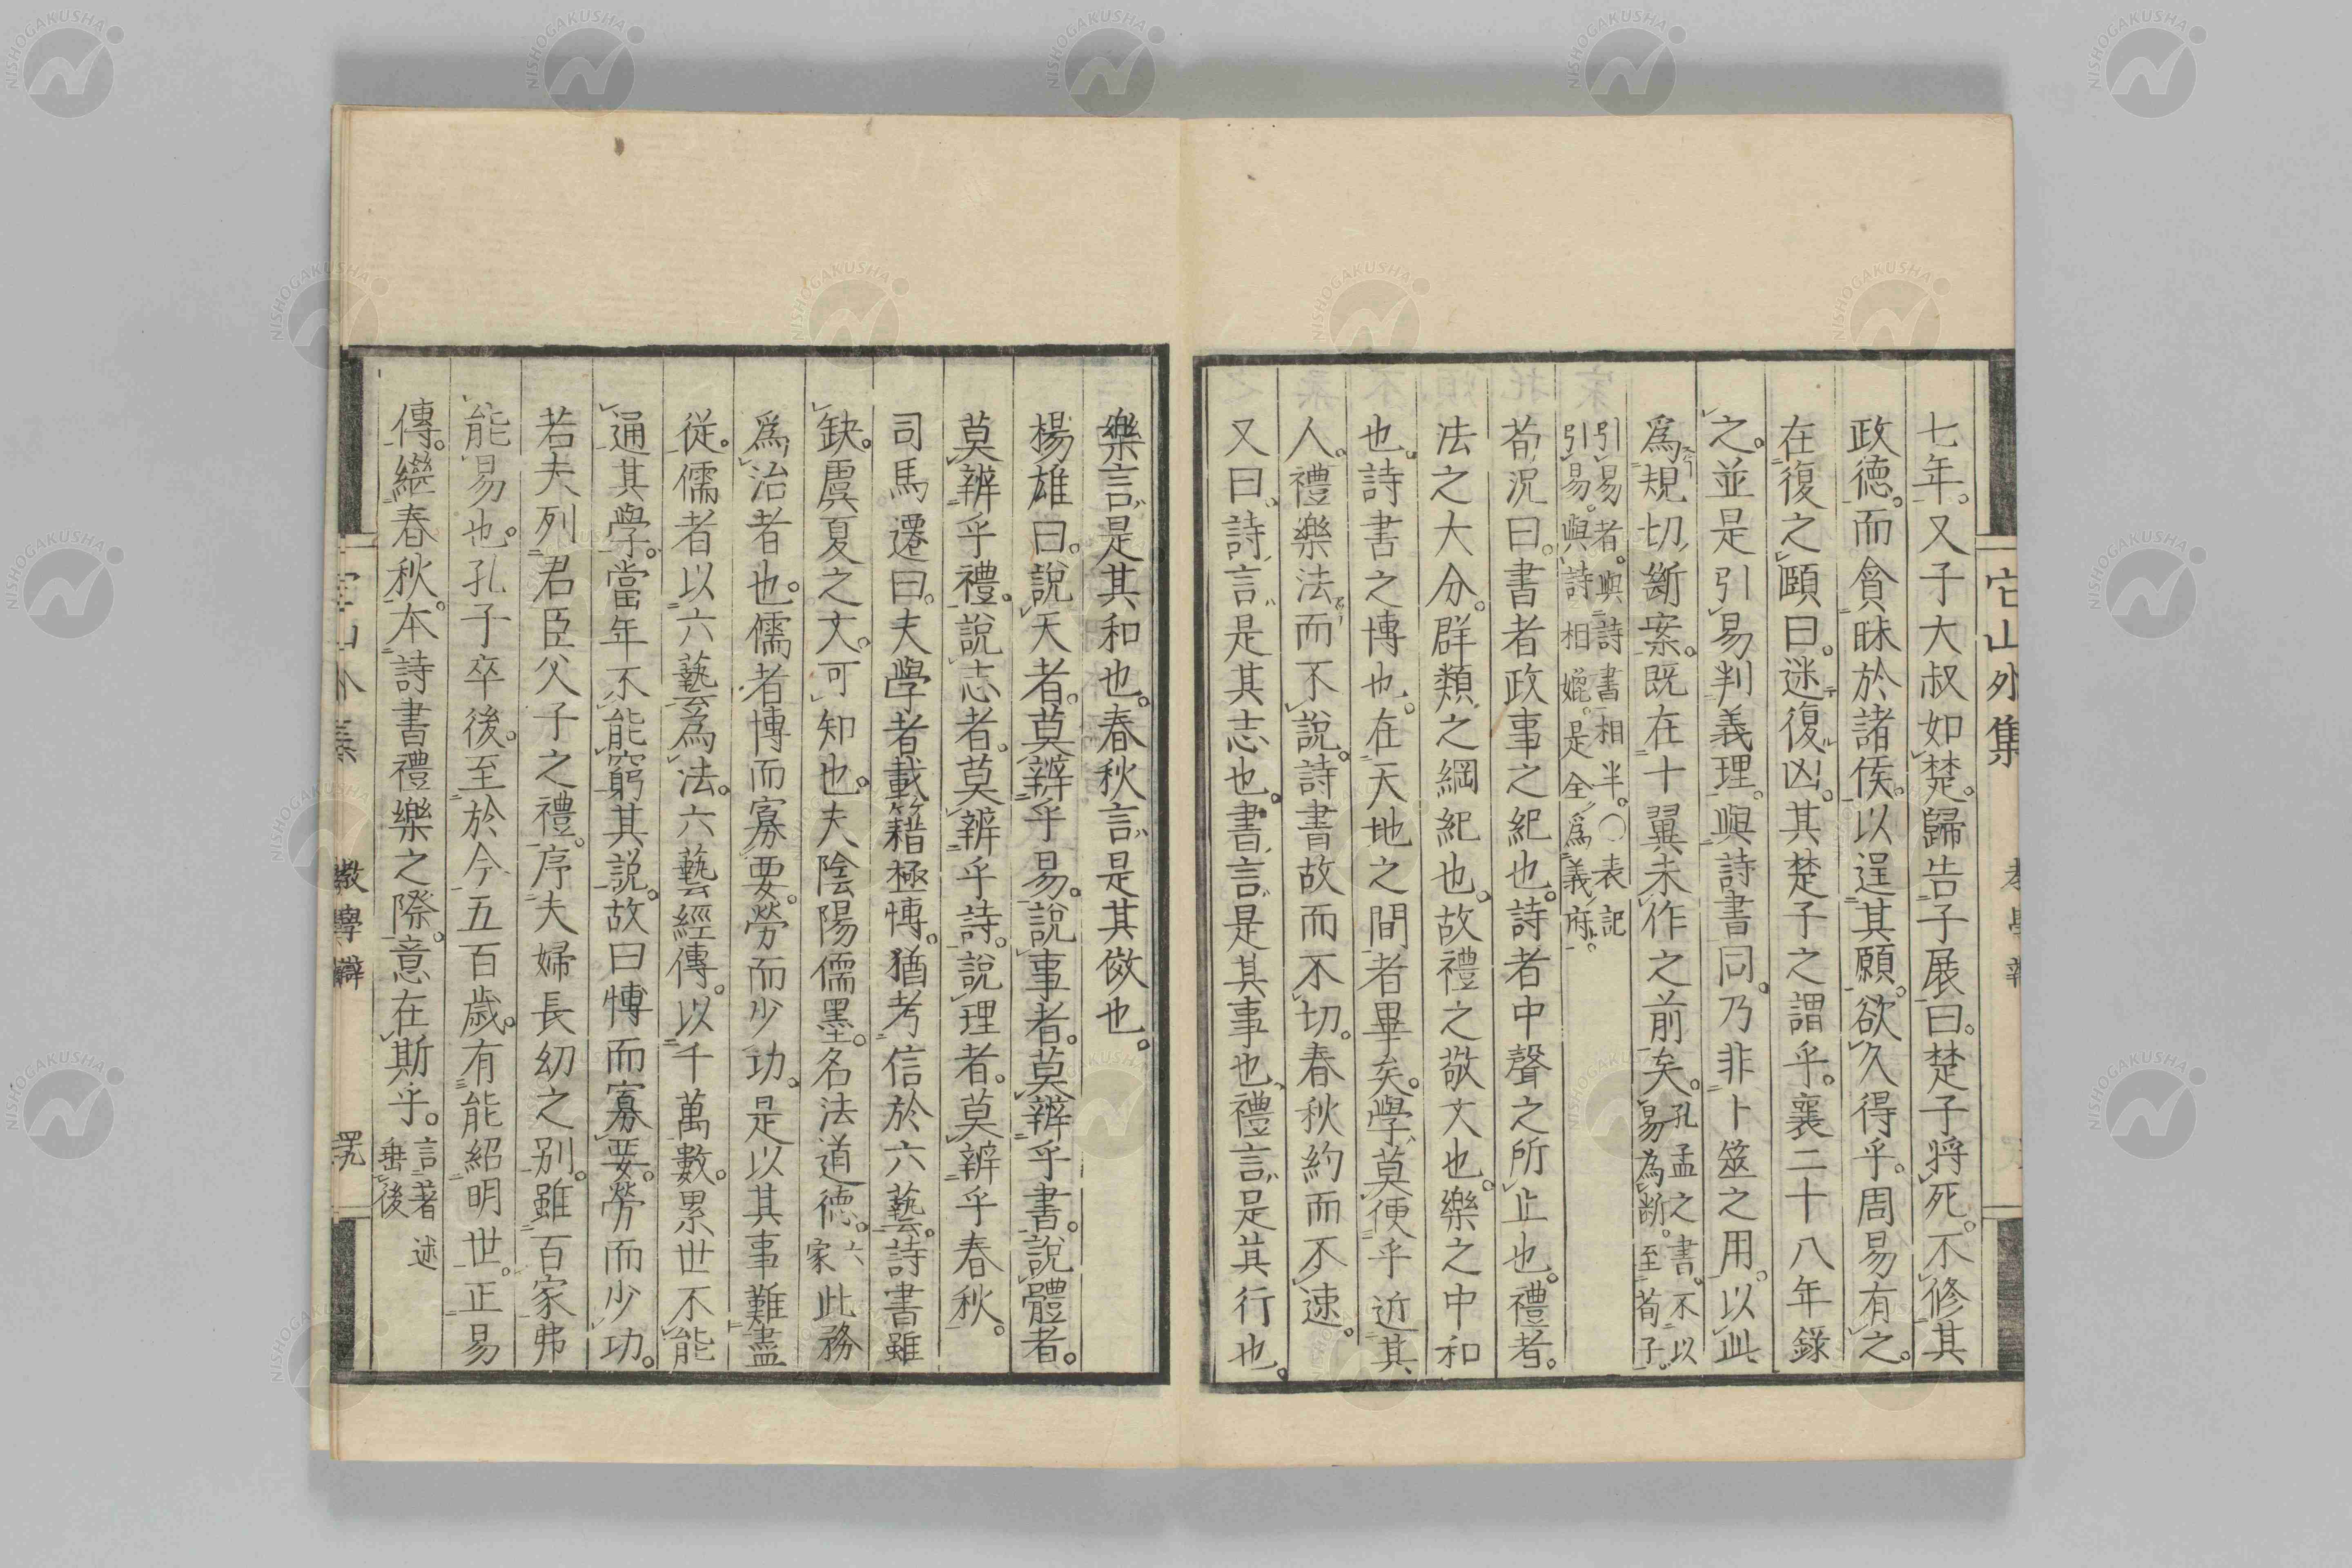 七年。又子大叔如楚。歸告子展曰。楚子將死。不修其
政德。而貪昧於諸侯。以逞其願。欲久得乎。周易有之。
在復之頤曰。迷復凶。其楚子之謂乎。襄二十八年錄
之。並是引易判義理。與詩書同。乃非卜筮之用。以此
爲規切斷案。既在十翼未作之前矣。孔孟之書。不以
易為斷。至荀子。
引易者。與詩書相半。〇表記
引易。與詩相媲。是全爲義府。
荀況曰。書者政事之紀也。詩者中聲之所止也。禮者。
法之大分。群類之綱紀也。故禮之敬文也。樂之中和
也。詩書之博也。在天地之間者畢矣。學莫便乎近其
人。禮樂法而不說。詩書故而不切。春秋約而不速。
又曰。詩言是其志也。書言是其事也。禮言是其行也。
樂言是其和也。春秋言是其微也。
楊雄曰。說天者。莫辨乎易。說事者。莫辨乎書。說體者。
莫辨乎禮。說志者。莫辨乎詩。說理者。莫辨乎春秋。
司馬遷曰。夫學者載籍極愽。猶考信於六藝。詩書雖
缺。虞夏之文。可知也。夫陰陽儒墨。名法道德。六
家此務
爲治者也。儒者博而寡要。勞而少功。是以其事難盡
從。儒者以六藝為法。六藝經傳。以千萬數。累世不能
通其學。當年不能窮其説。故曰愽而寡要。勞而少功。
若夫列君臣父子之禮。序夫婦長幼之別。雖百家弗
能易也。孔子卒後。至於今五百歳。有能紹明世。正易
傳。繼春秋。本詩書禮樂之際。意在斯乎。言著述
垂後
它山外集
教學辯